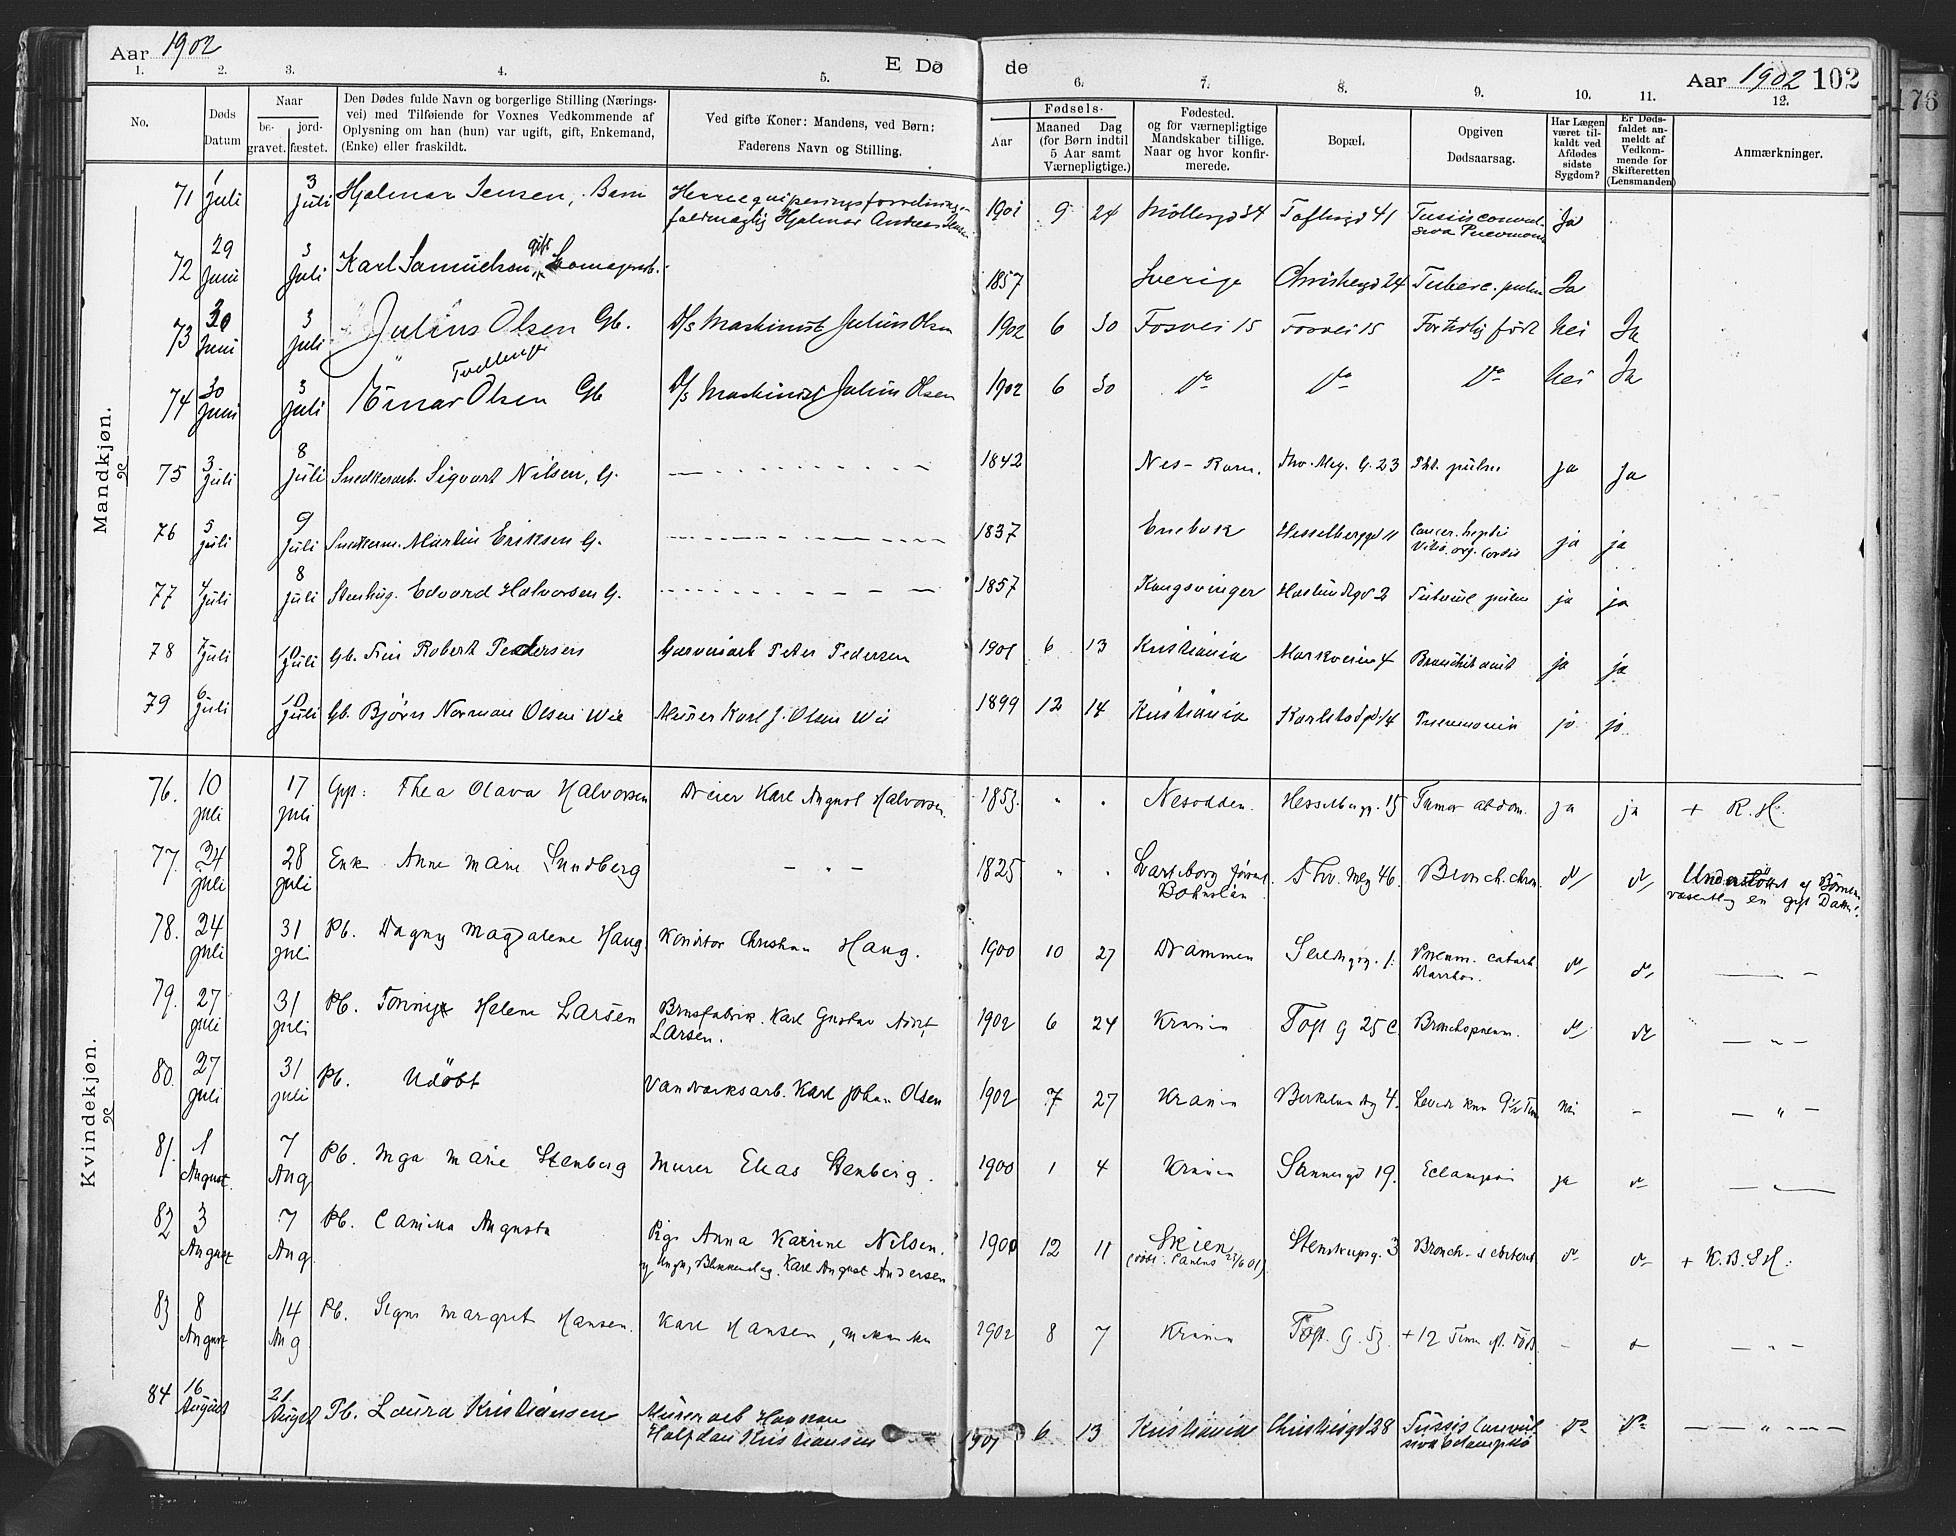 Aar 1902
E Dø
de
Aar 1902 102
176
1. 2. 3. 4. 5. 6. 7. 8. 9. 10. 11. 12.
No.
Døds Datum
Naar
be- gravet.
jord- fæstet.
Den Dødes fulde Navn og borgerlige Stilling (Nærings-
vei) med Tilføiende for Voxnes Vedkommende af
Oplysning om han (hun) var ugift, gift, Enkemand,
(Enke) eller fraskildt.
Ved gifte Koner: Mandens, ved Børn:
Faderens Navn og Stilling.
Fødsels-
Aar
Maaned Dag
(for Børn indtil
5 Aar samt
Værnepligtige.)
Fødested.
og for værnepligtige
Mandskaber tillige.
Naar og hvor konfir-
merede.
Bopæl.
Opgiven
Dødsaarsag.
Har Lægen
været til-
kaldt ved
Afdødes
sidste
Sygdom?
Er Døds-
faldet an-
meldt af
Vedkom-
mende for
Skifteretten
(Lensmanden)
Anmærkninger.
Mandkjøn.
71 1 Juli 3 Juli Hjalmar Jensen, Barn Herreequiperingsforretnings-
fuldmægtig Hjalmar Andreas Jensen 1901 9 24 Møllergd 34 Toftesgd 41 Tussis convul
siva Pneumoni Ja
72 29 Juni 3 Juli Karl Samuelsen, gift 1857 Sverige Christiesgd 24 Tuberc. pulm Ja
73 30 Juni 3 Juli Julius Olsen Gb. D/s Maskinist Julius Olsen 1902 6 30 Fosvei 15 Fosvei 15 Fortidlig født Nei Ja
Tvillinger
74 30 Juni 3 Juli Einar Olsen Gb D/s Maskinist Julius Olsen 1902 6 30 Do Do Do Nei Ja
75 3 Juli 8 Juli Snedkerarb. Sigvart Nilsen, G. 1842 Nes-Rom. Thv. Mey. G. 23 Tbb. pulm ja Ja
76 5 Juli 9 Juli Snedkerm. Martin Eriksen G. 1837 Enebak Hesselberggd 11 Cancer. hepatis
Vitis. org. cordis ja ja
77 4 Juli 8 Juli Stenhug. Edvard Halvorsen G. 1857 Kongsvinger Haslundsgd 2 Tubercul pulm ja ja
78 7 Juli 10 Juli Gb. Finn Robert Pedersen Garveriarb Peter Pedersen 1901 6 13 Kristiania Markveien 4 Bronchit acut ja ja
79 6 Juli 10 Juli Gb. Bjørn Norman Olsen Wie Murer Karl J. Olsen Wie 1899 12 14 Kristiania Karlstadgd 14 Pneumonia ja ja
Kvindekjøn.
76. 10 juli 17 juli Gift: Thea Olava Halvorsen Dreier Karl August Halvorsen. 1853. " " Nesodden. Hesselbergg. 15 Tumor abdom. ja ja + R. H.
77. 24 juli 28 juli Enk Anne Marie Lundberg — " — 1825 " " Svarteborg
Bohuslän Thv. Meg 46. Bronch. chron. do do Understöttet af Börnene
væsentlig en gift Datter.
78. 24 juli 31 juli Pb. Dagny Magdalene Haug Konditor Christian Haug. 1900 10 27 Drammen Seildugsg. 1. Pneum. catarh.
Diarrhoe. do do — —
79. 27 juli 31 juli Pb. Helene Larsen Brusfabrik. Karl Gustav Adolf
Larsen. 1902 6 24 Krania Toft g 25 c Bronchopneum. do do — " —
80. 27 juli 31 juli Pb. Udöbt Vandværksarb. Karl Johan Olsen 1902 7 27 Krania Birkelundg 4. Levede kun 9½ Time nei - — " —
81. 1 August 7 Aug Pb. Inga Marie Stenberg Murer Elias Stenberg. 1900 1 4 Krania Sannergd 19. Eclampsi ja do — " —
82 3 August 7 Aug Pb. Camilla Augusta Pige Anna Katrine Nilsen.
og Ungk. Karl August Andersen 1900 12 11 Skien
23/6 01). Stenstrupsg. 3 Bronch- do do + K. B. S H.
83 8 August 14 Aug Pb. Signe Margret Hansen. Karl Hansen, 1902 8 7 Krania Toft. G. 53. +12 Time ef. Föds. - do — " —
84 16 August 21 August Pb. Laura Kristiansen Murerarb Haakon
Halfdan Kristiansen 1901 6 13 Kristiania Christiesgd 28 Tussis Convul
siva Eclampsia Do Do — — " — — —